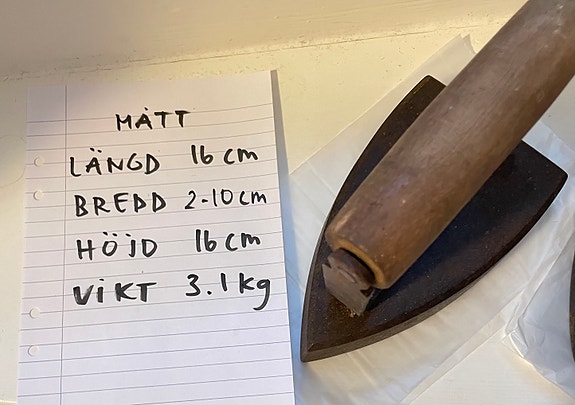 MÅTT
LÄNGD 16 cm
BREDD 2-10 cm
HÖJD 16 cm
VIKT 3.1 kg